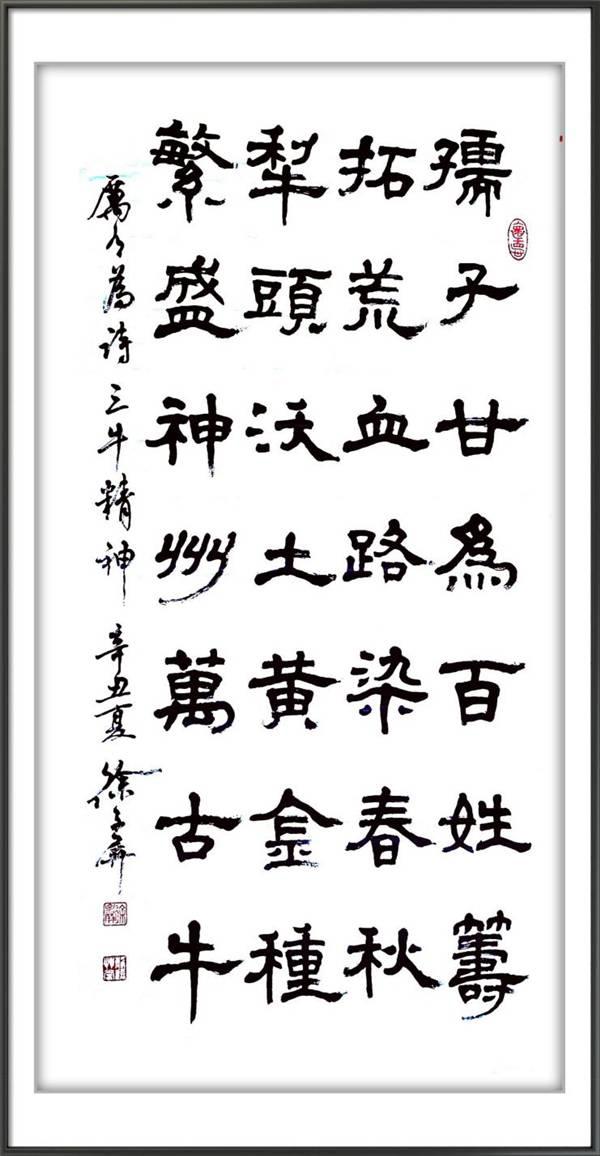 孺子甘為百姓籌
拓荒血路染春秋
犁頭沃土黄金種
繁盛神州萬古牛
厲有為詩 三牛精神 辛丑夏 徐子